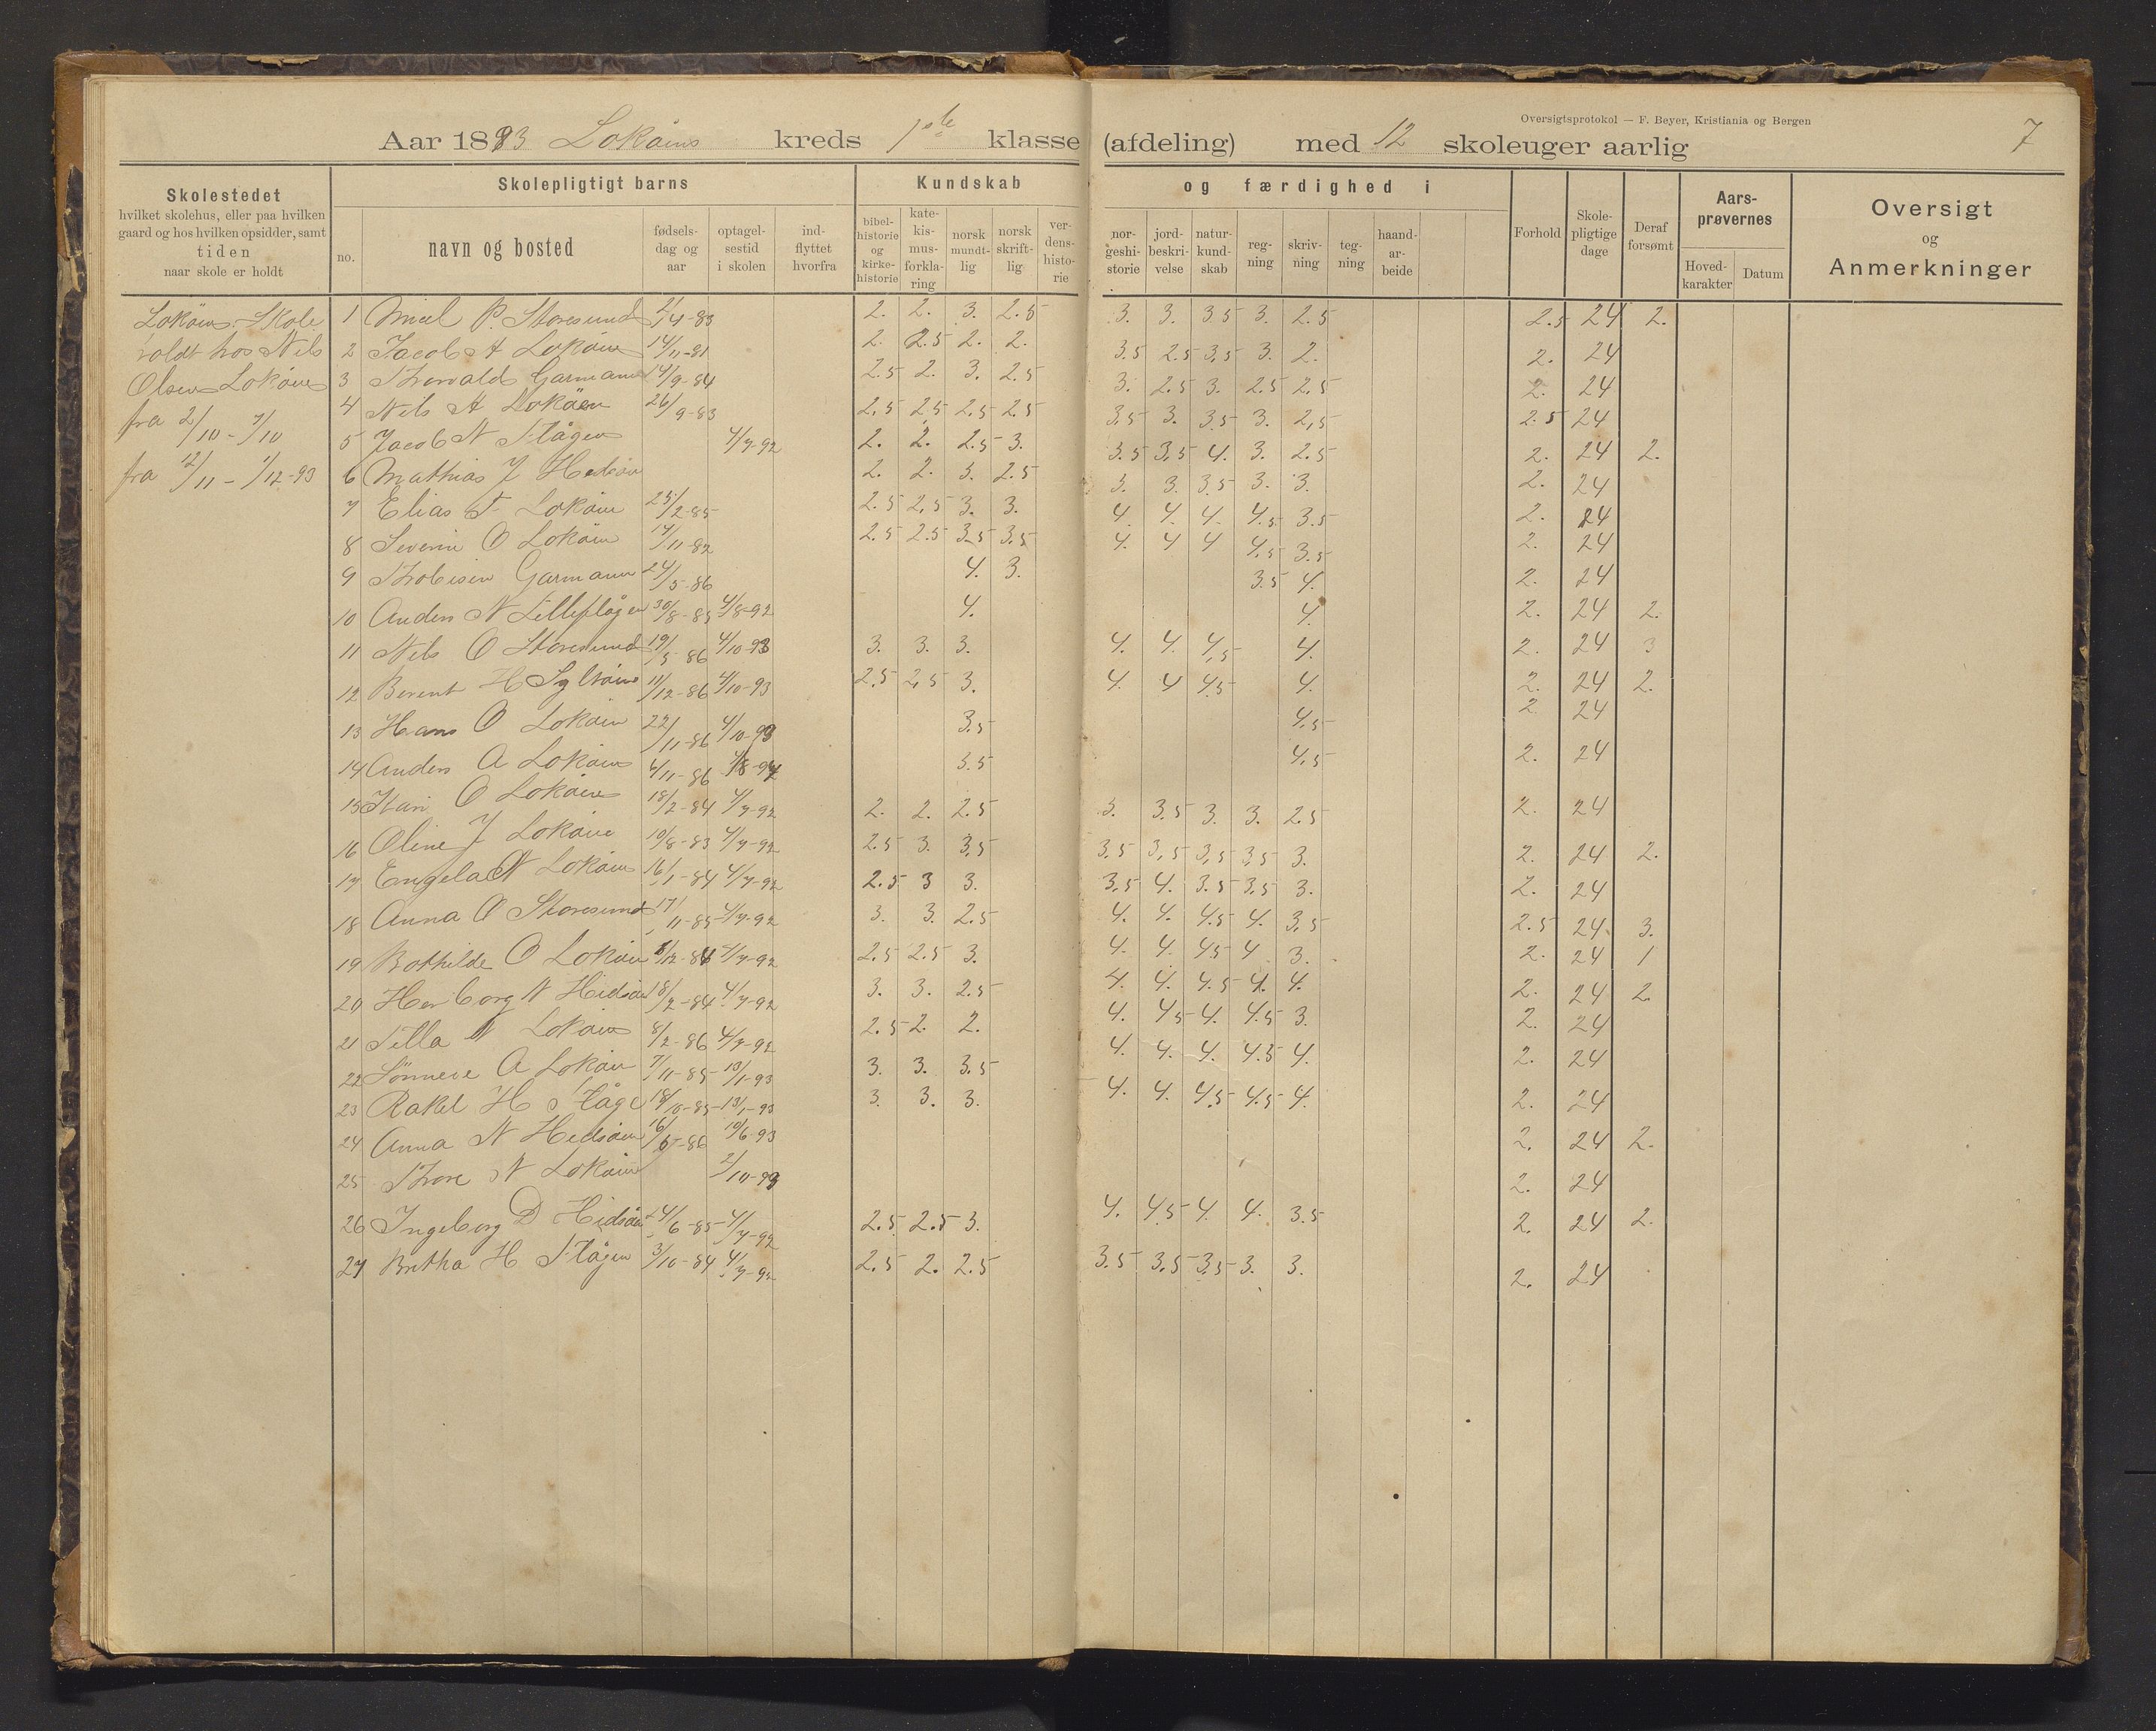 Oversigtsprotokol — F. Beyer, Kristiania og Bergen
7
Aar 1893 Lokøins kreds 1ste klasse (afdeling) med 12 skoleuger aarlig
Skolestedet
hvilket skolehus, eller paa hvilken
gaard og hos hvilken opsidder, samt
tiden
naar skole er holdt
Skolepligtigt barns
no.
navn og bosted
fødsels-
dag og
aar
optagel-
sestid
i skolen
ind-
flyttet
hvorfra
Kundskab og færdighed i
bibel-
historie
og
kirke-
historie
kate-
kis-
mus-
forkla-
ring
norsk
mundt-
lig
norsk
skrift-
lig
ver-
dens-
histo-
rie
nor-
geshi-
storie
jord-
beskri-
velse
natur-
kund-
skab
reg-
ning
skriv-
ning
teg-
ning
haand-
ar-
beide
Forhold
Skole-
pligtige
dage
Deraf
forsømt
Aars-
prøvernes
Hoved-
karakter
Datum
Oversigt
og
Anmerkninger
Lokøins Skole
holdt hos Nils
Olsen Lokøins
fra 2/10 - 7/10
fra 12/11 - 1/12-93
1 P. Storesund 2/4-83 2. 2. 3. 2.5 3. 3. 3.5 3. 2.5 2.5 24 2.
2 Jacob A Lokøin 14/11-81 2. 2.5 2. 2. 3.5 2.5 3.5 3. 2. 2. 24
3 Thorvald Garmann 14/9-84 2.5 2. 3. 2.5 3. 2.5 3. 2.5 2.5 2. 24
4 Nils A Lokøen 26/9-83 2.5 2.5 2.5 2.5 3.5 3. 3.5 3. 2.5 2.5 24
5 Jacob N Flågen 4/7-92 2. 2. 2.5 3. 3.5 3.5 4. 3. 2.5 2. 24 2.
6 Mathias J Hedsøin 2. 2. 3. 2.5 3. 3. 3.5 3. 3. 2. 24
7 Elias T Lokøin 25/2-85 2.5 2.5 3. 3. 4. 4. 4. 4.5 3.5 2. 24
8 Severin O Lokøin 14/11-82 2.5 2.5 3.5 3.5 4. 4 4 4.5 3.5 2. 24
9 Garmann 24/5-86 4. 3. 3.5 4. 2. 24
10 Anders N Lilleflågen 30/8-85 4/8-92 4. 4. 2. 24 2.
11 Nils O Storesund 19/5-86 4/10-93 3. 3. 3. 4. 4. 4.5 4. 2. 24 3
12 Berent H Syltøin 11/12-86 4/10-93 2.5 2.5 3. 4. 4 4.5 4. 2. 24 2.
13 Hans O Lokøin 22/11-86 4/10-93 3.5 4.5 2. 24
14 Anders A Lokøin 4/11-86 3.5 4.5 2. 24
15 Kari O Lokøin 18/2-84 4/7-92 2. 2. 2.5 3. 3.5 3. 3. 2.5 2. 24
16 Oline J Lokøin 10/8-83 4/7-92 2.5 3. 3.5 3.5 3.5 3.5 3.5 3. 2. 24 2.
17 Engela N Lokøin 16/1-84 4/7-92 2.5 3 3. 3.5 4. 3.5 3.5 3. 2. 24
18 Anna O Storesund 17/11-85 4/7-92 3. 3. 2.5 4. 4. 4.5 4. 3.5 2.5 24 3.
19 Bothilde O Lokøin 4/7-92 2.5 2.5 3. 4. 4. 4.5 4 3. 2. 24 1
20 Herborg N Hidsøin 18/2-84 4/7-92 3. 3. 2.5 4. 4. 4.5 4. 4. 2. 24 2.
21 Lokøin 8/2-86 4/7-92 2.5 2. 2. 4. 4.5 4. 4.5 3. 2. 24
22 Sønneve A Lokøin 7/11-85 13/1-93 3. 3. 3.5 4. 4. 4. 4.5 4. 2. 24
23 Rakel H Flågen 18/10-85 13/1-93 3. 3. 3. 4. 4. 4.5 4.5 4. 2. 24
24 Anna N Hedsøin 16/6-86 10/6-93 2. 24 2.
25 Thore N Lokøin 2/10-93 2. 24
26 Ingeborg D Hidsøin 24/6-85 4/7-92 2.5 2.5 3. 4. 4.5 4. 4. 3.5 2. 24 2.
27 Britha H Flågen 3/10-84 4/7-92 2.5 2. 2.5 3.5 3.5 3.5 3. 3. 2. 24